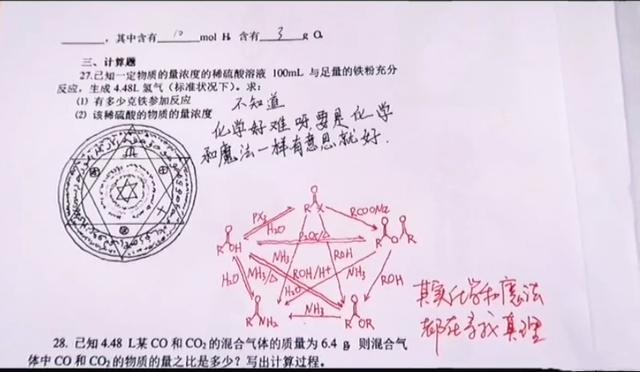 ______，其中含有 10 mol H, 含有 3 g O.
三、计算题
27.已知一定物质的量浓度的稀硫酸溶液 100mL 与足量的铁粉充分
反应，生成 4.48L 氢气（标准状况下）。求：
(1) 有多少克铁参加反应
不知道
(2) 该稀硫酸的物质的量浓度
化学好难呀,要是化学
和魔法一样有意思就好.
O
R X
PX₃
H₂O
RCOONa
O
R OH
P₂O₅/△
O O
R O R
H₂O
NH₃/△
NH₃
ROH/H+
ROH
H₂O
NH₃
ROH
O
R NH₂
NH₃
O
R OR
其实化学和魔法
都在寻找真理
28. 已知 4.48 L某 CO 和 CO₂ 的混合气体的质量为 6.4 g, 则混合气
体中 CO 和 CO₂ 的物质的量之比是多少？写出计算过程。